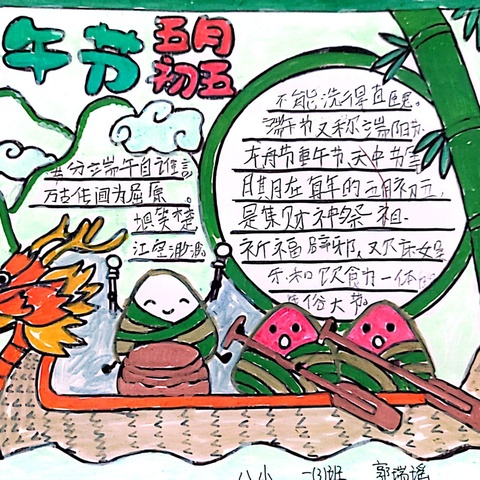 午节
五月
初五
节分端午自谁言
万古传闻为屈原。
堪笑楚
江空渺渺
不能洗得直臣。
端午节又称端阳节
龙舟节重午节、天中节
日期在每年的五月初五,
是集 神祭祖、
祈福辟邪、 庆
乐和饮食为一体
民俗大节
八小 一(3)班 郭瑞瑶